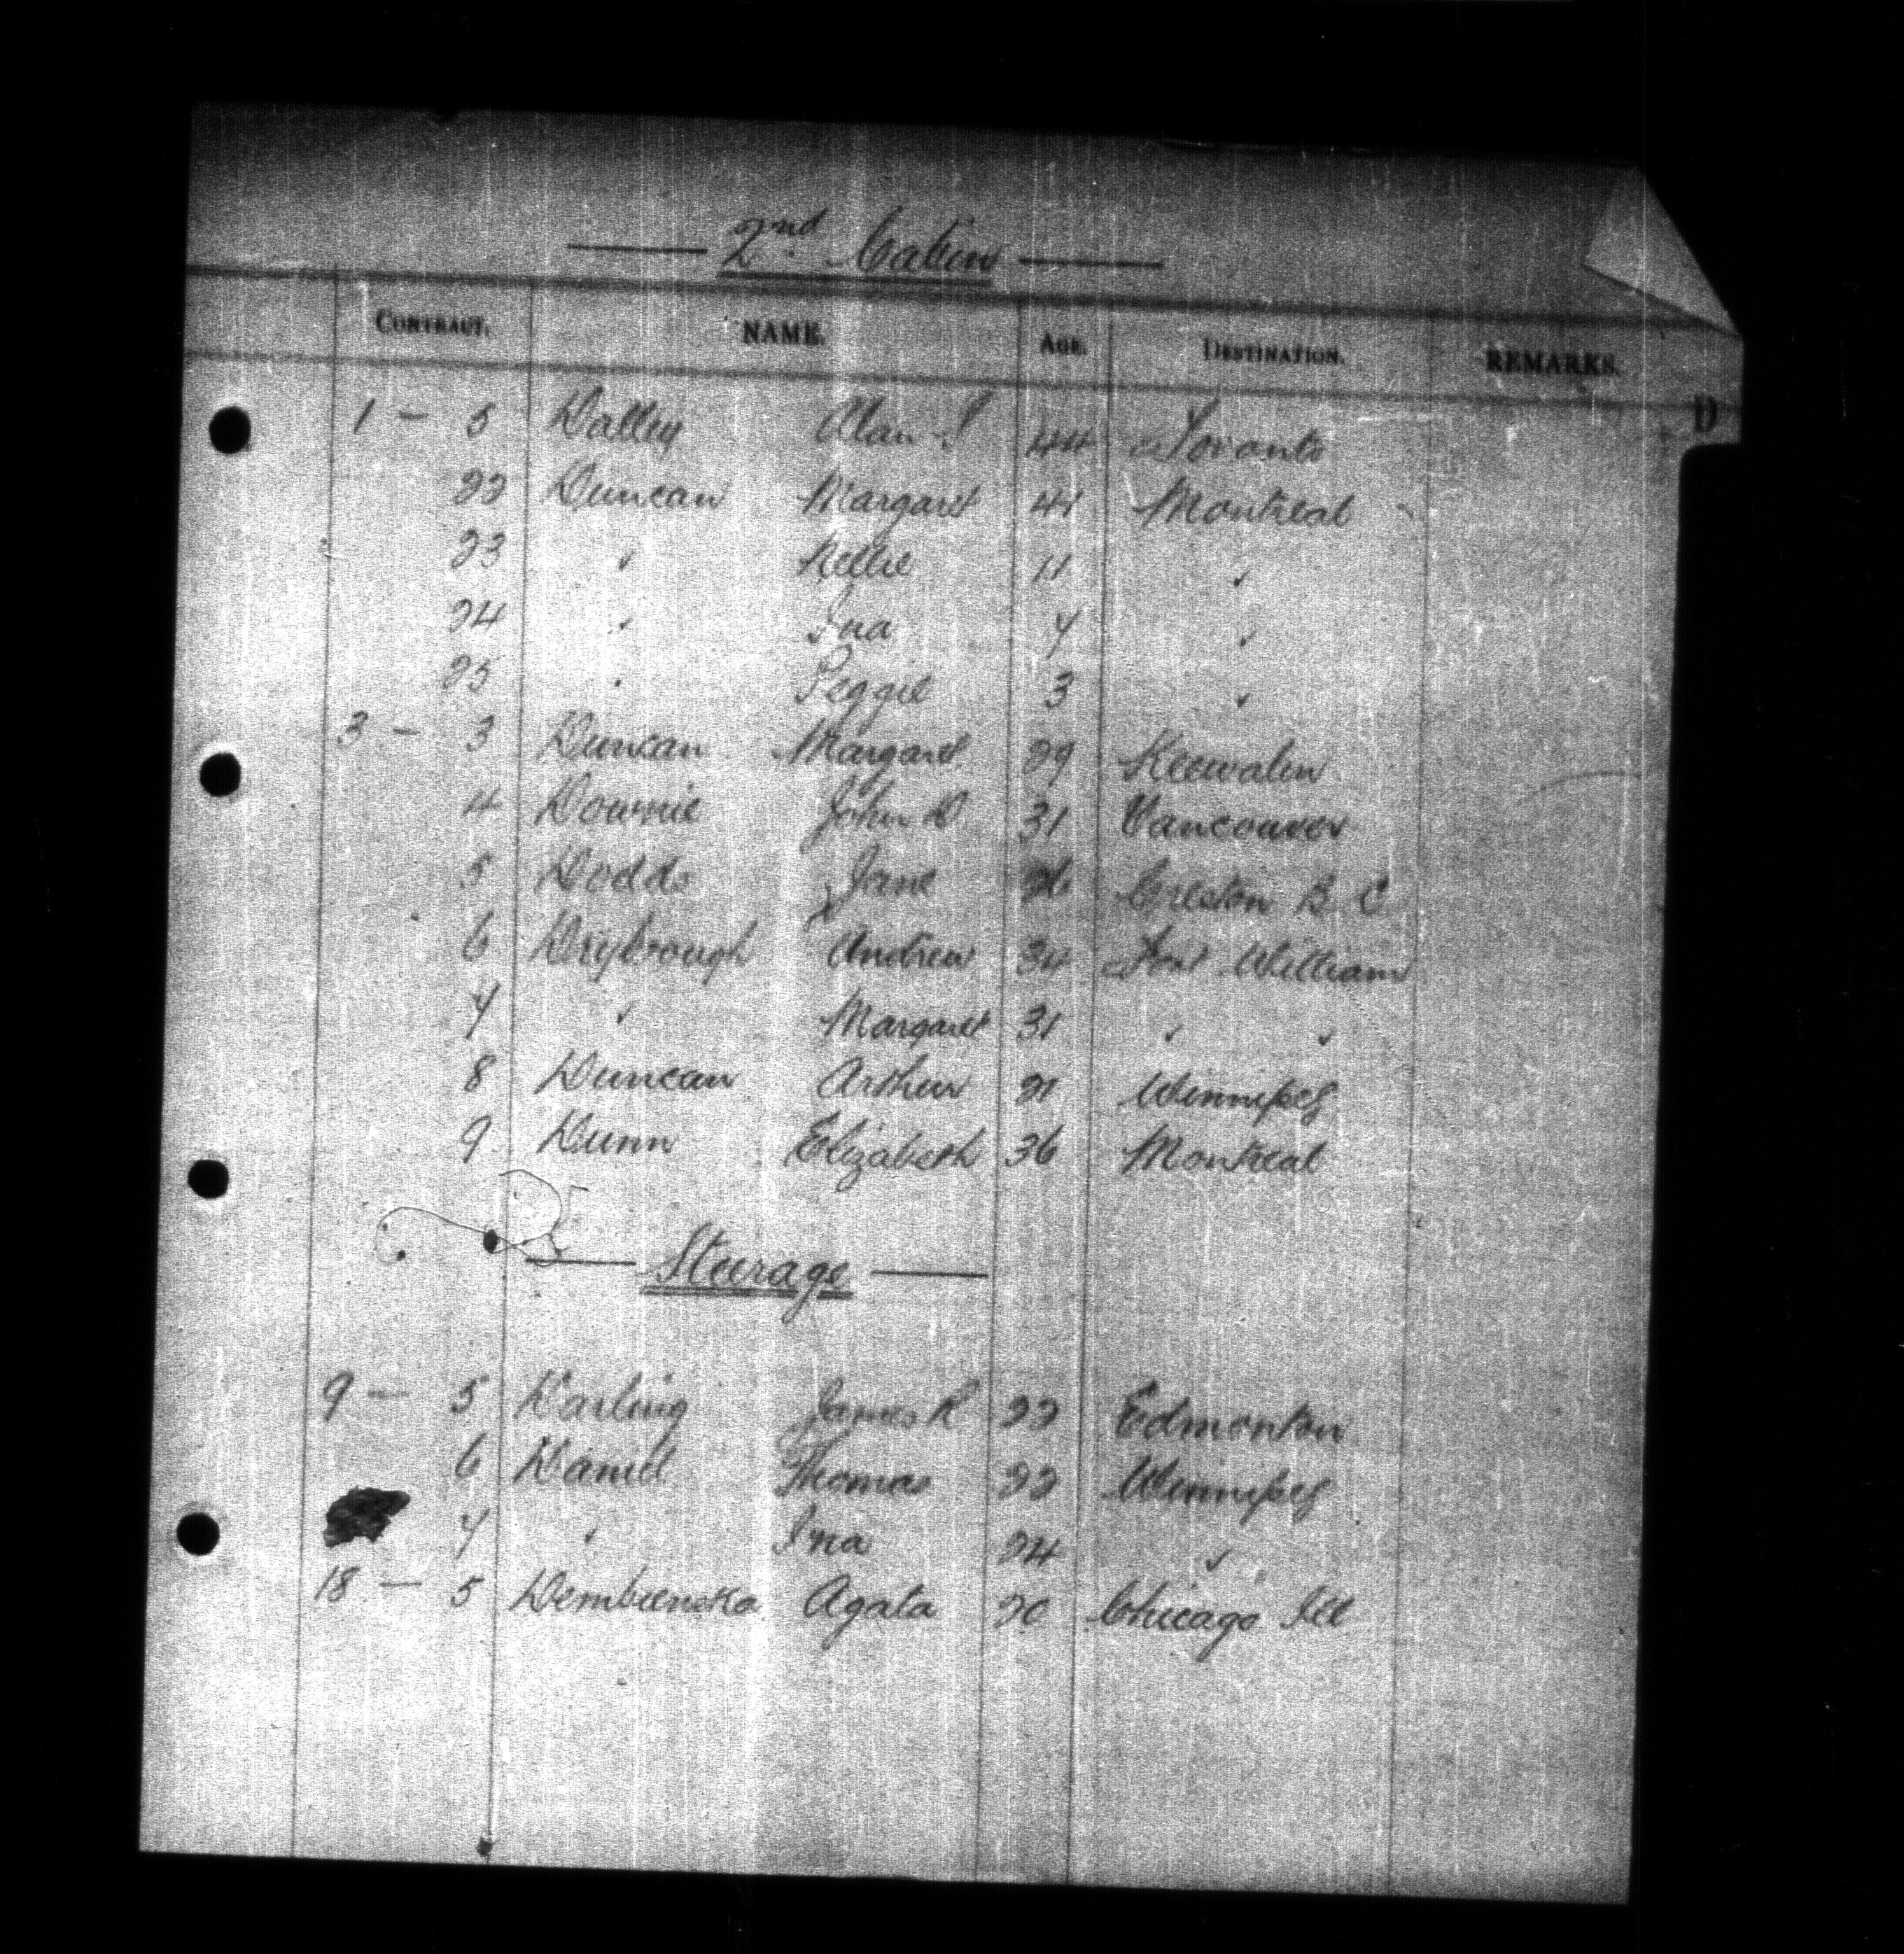 — 2nd. Cabin —
CONTRACT. NAME. AGE. DESTINATION. REMARKS.
D
1 - 5 Dalley Alan S 44 Toronto
22 Duncan Margaret 41 Montreal
23 " Nellie 11 "
24 " Ina 7 "
25 " Peggie 3 "
3 - 3 Duncan Margaret 29 Keewatin
4 Downie John D 31 Vancouver
5 Dodds Jane 26 Creston B.C
6 Drybrough Andrew 34 Fort William
7 " Margaret 31 " "
8 Duncan Arthur 21 Winnipeg
9 Dunn Elizabeth 36 Montreal
— Steerage —
9 - 5 Darling James R 22 Edmonton
6 Daniel Thomas 22 Winnipeg
7 " Ina 24 "
18 - 5 Dembienska Agata 20 Chicago Ill